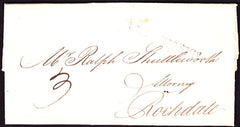 Mr Ralph Shuttleworth
3
Attorney
Rochdale